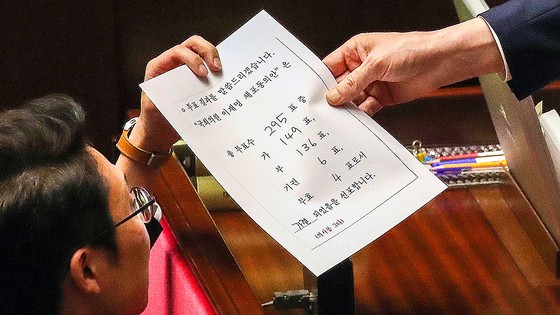 ○ 투표 결과를 말씀드리겠습니다.
"국회의원 이재명 체포동의안"은
총 투표수 295 표 중
가 149 표,
부 136 표,
기권 6 표,
무효 4 표로서
가결 되었음을 선포합니다.
(의사봉 3타)